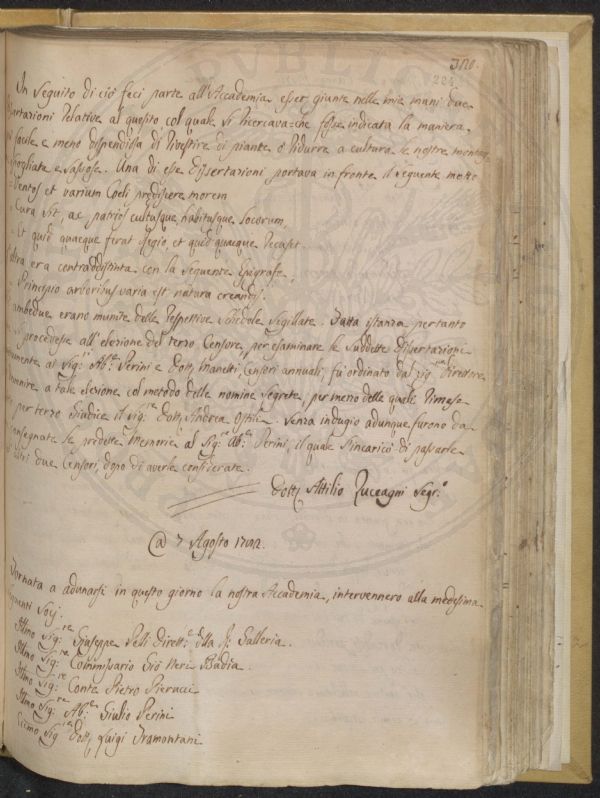 320.
224
In seguito di ciò feci parte all'Accademia esser giunte nelle mie mani due
sertazioni relative al quesito col quale si ricercava = che fosse indicata la maniera
facile e meno dispendiosa di rivestire di piante o ridurre a cultura le nostre montag
spogliate e sassose. Una di esse Dissertazioni portava in fronte il seguente motto
= Ventos et varium Coeli prediscere morem
Cura sit, ac patrios cultusque, habitusque locorum,
Et quid quaeque ferat regio, et quid quaeque recuset.
altra era contraddistinta con la seguente Epigrafe
Principio arboribus varia est natura creandis.
ambedue erano munite delle respettive schedole sigillate. Fatta istanza pertanto
si procedesse all'elezione del terzo Censore, per esaminare le suddette Dissertazioni
ai Sig.ri Ab.e Perini e Dott. Manetti, Censori annuali, fu ordinato dal Sig. Direttore
a tale elezione col metodo delle nomine segrete, per meno delle quali rimase
per terzo Giudice il Sig.re Dott. Andrea Ostili. Senza indugio adunque furono da
consegnate le predette Memorie al Sig.re Ab.e Perini, il quale s'incaricò di passarle
altri due Censori, dopo di averle considerate.
Dott. Attilio Zuccagni Segr.o
@ 7 Agosto 1792.
Tornata a adunarsi in questo giorno la nostra Accademia, intervennero alla medesima
seguenti Socj.
Illmo Sig.re Giuseppe Pelli Dirett.e della R. Galleria.
Illmo Sig.re Commissario Gio Neri Badia.
Illmo Sig.re Conte Pietro Pierucci
Illmo Sig.re Ab.e Giulio Perini
Eccmo Sig.re Dott. Luigi Tramontani